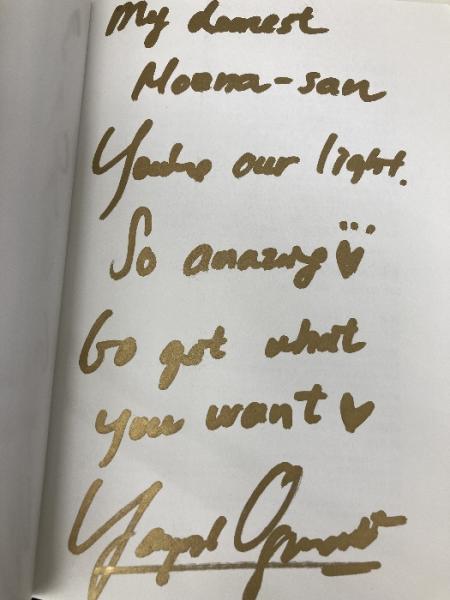 My dearest
Moena-san
You're our light.
So amazing♥
Go get what
you want♥